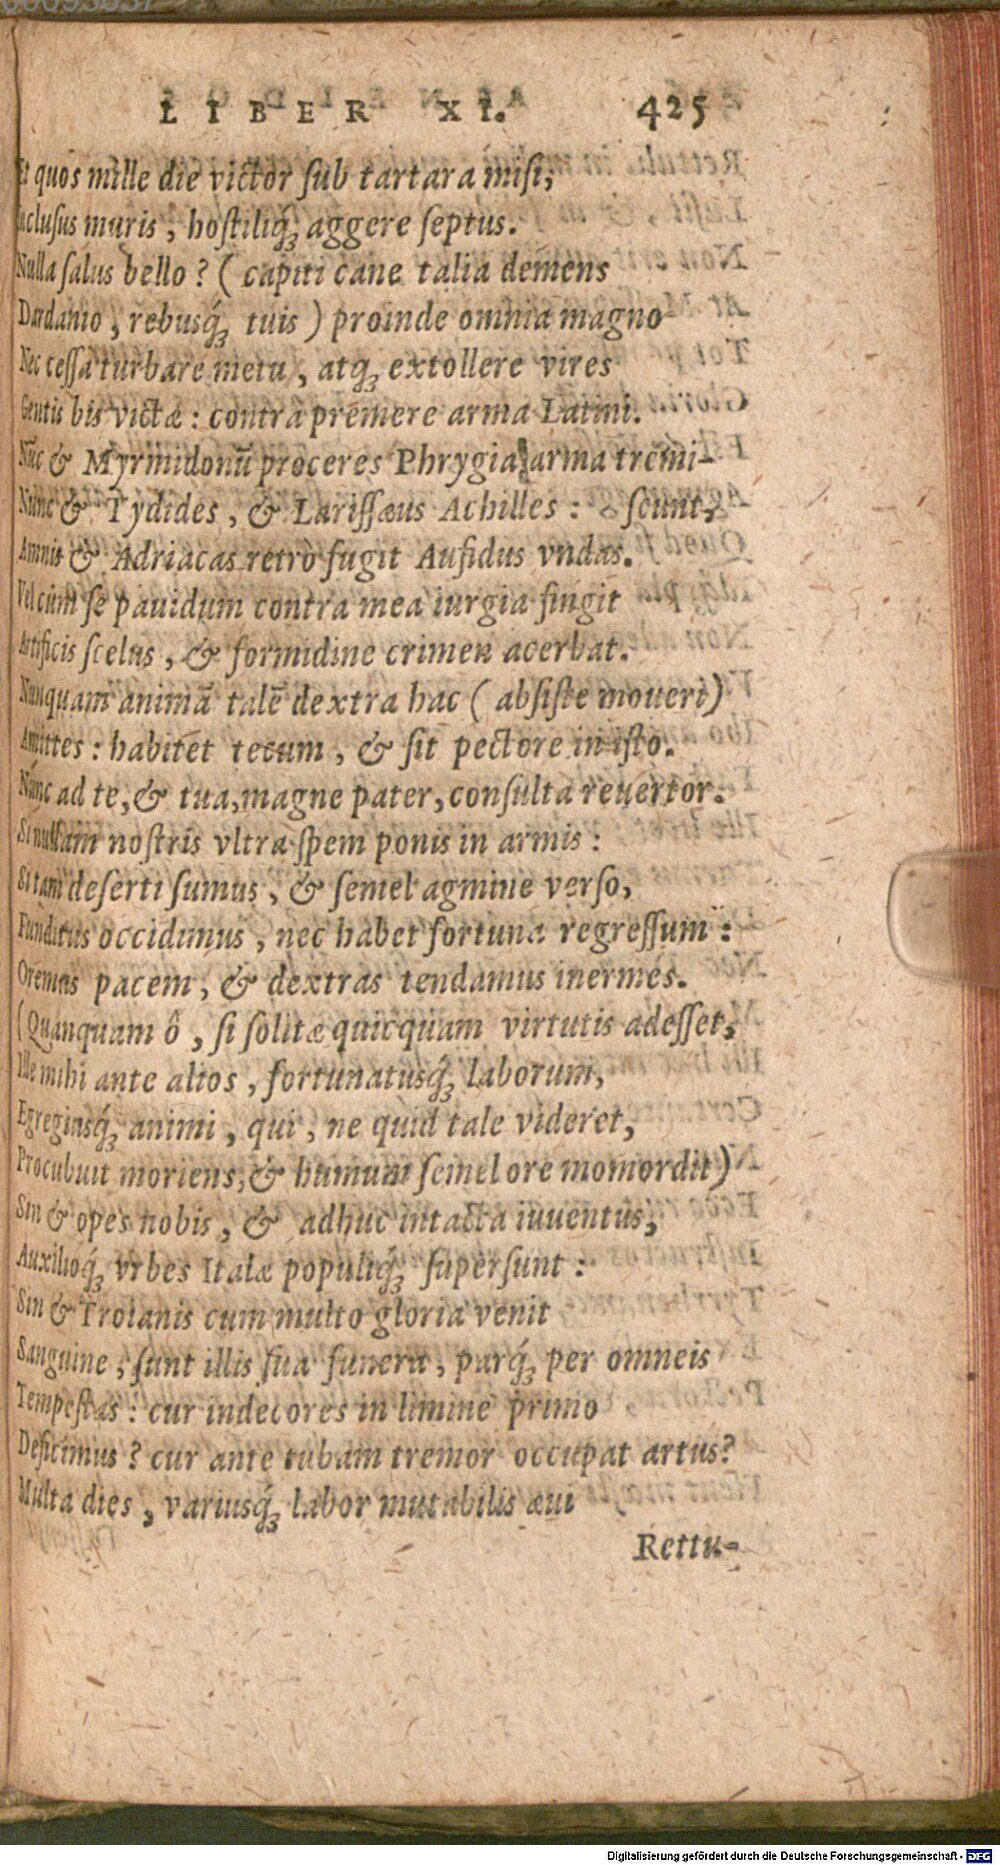 LIBER XI. 425
Et quos mille die victor ſub tartara miſi,
Incluſus muris, hoſtiliq́ꝫ aggere ſeptus.
Nulla ſalus bello? (capiti cane talia demens
Dardanio, rebusq́ꝫ tuis) proinde omnia magno
Nec ceſſa turbare metu, atq́ꝫ extollere vires
Gentis bis victæ: contrà premere arma Latini.
Nũc & Myrmidonũ proceres Phrygia arma tremi-
Nunc & Tydides, & Lariſſæus Achilles: ſcunt,
Amnis & Adriacas retrò fugit Aufidus vndas.
Vel cùm ſe pauidum contra mea iurgia fingit
Artificis ſcelus, & formidine crimen acerbat.
Nunquam animã talẽ dextra hac (abſiſte moueri)
Amittes: habitet tecum, & ſit pectore in iſto.
Nunc ad te, & tua, magne pater, conſulta reuertor.
Si nullam noſtris vltra ſpem ponis in armis:
Si tam deſerti ſumus, & ſemel agmine verſo,
Funditus occidimus, nec habet fortuna regreſſum:
Oremus pacem, & dextras tendamus inermes.
(Quanquam ô, ſi ſolitæ quicquam virtutis adeſſet,
Ille mihi ante alios, fortunatusq́ꝫ laborum,
Egregiusq́ꝫ animi, qui, ne quid tale videret,
Procubuit moriens, & humum ſemel ore momordit)
Sin & opes nobis, & adhuc intacta iuuentus,
Auxilioq́ꝫ vrbes Italæ populiq́ꝫ ſuperſunt:
Sin & Troianis cum multo gloria venit
Sanguine, ſunt illis ſua funera, parq́ꝫ per omneis
Tempeſtas: cur indecores in limine primo
Deficimus? cur ante tubam tremor occupat artus?
Multa dies, variusq́ꝫ labor mutabilis æui
Rettu-
Digitalisierung gefördert durch die Deutsche Forschungsgemeinschaft - DFG